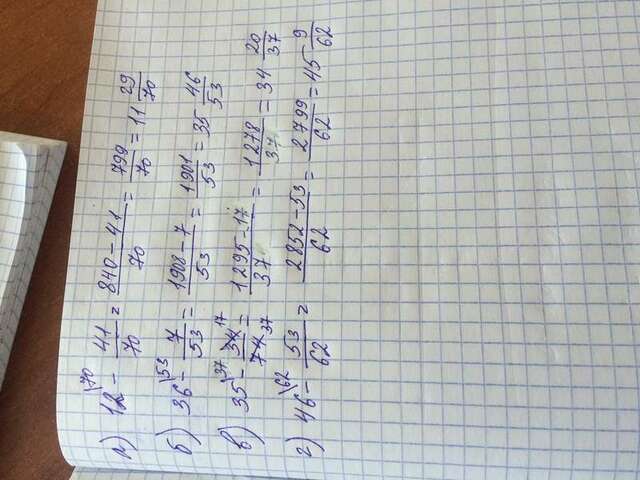 а) 12\70 - 41/70 = 840-41/70 = 799/70 = 11 29/70
б) 36\53 - 7/53 = 1908-7/53 = 1901/53 = 35 46/53
в) 35\37 - 34/74 17/37 = 1295-17/37 = 1278/37 = 34 20/37
г) 46\62 - 53/62 = 2852-53/62 = 2799/62 = 45 9/62